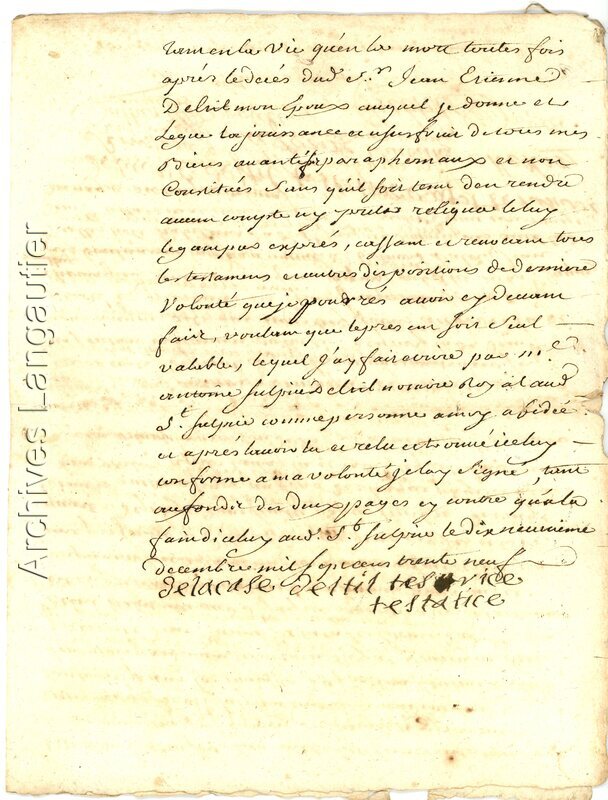 tant en la vie qu'en la mort toutes fois
aprés le decés dud. Sr. Jean Etienne
Delstil mon Epoux auquel je donne et
Legue la jouissance et usufruit de tous mes
Biens avantifs paraphernaux et non
Constitués sans quil soit tenu den rendre
aucun compte ny preter reliqua le luy
legant pas exprés, cassant et revocant tous
les testamens et autres dispositions de derniere
Volonté que je pourrés avoir cy devant
fait, voulant que le presant soit seul
valable, lequel J'ay fait ecrire par Me.
antoine sulpice Delstil notaire Royal aud.
St. sulpice comme personne a moy afidée
et aprés lavoir lu et relu et trouvé iceluy
conforme a ma volonté Je lay signé, tant
au fonds des deux pages cy contre qu'a la
fain diceluy aud. St. sulpice le dix neuvieme
decembre mil sept cens trente neuf
delacase delstil testatrice
testatice
Archives Langautier